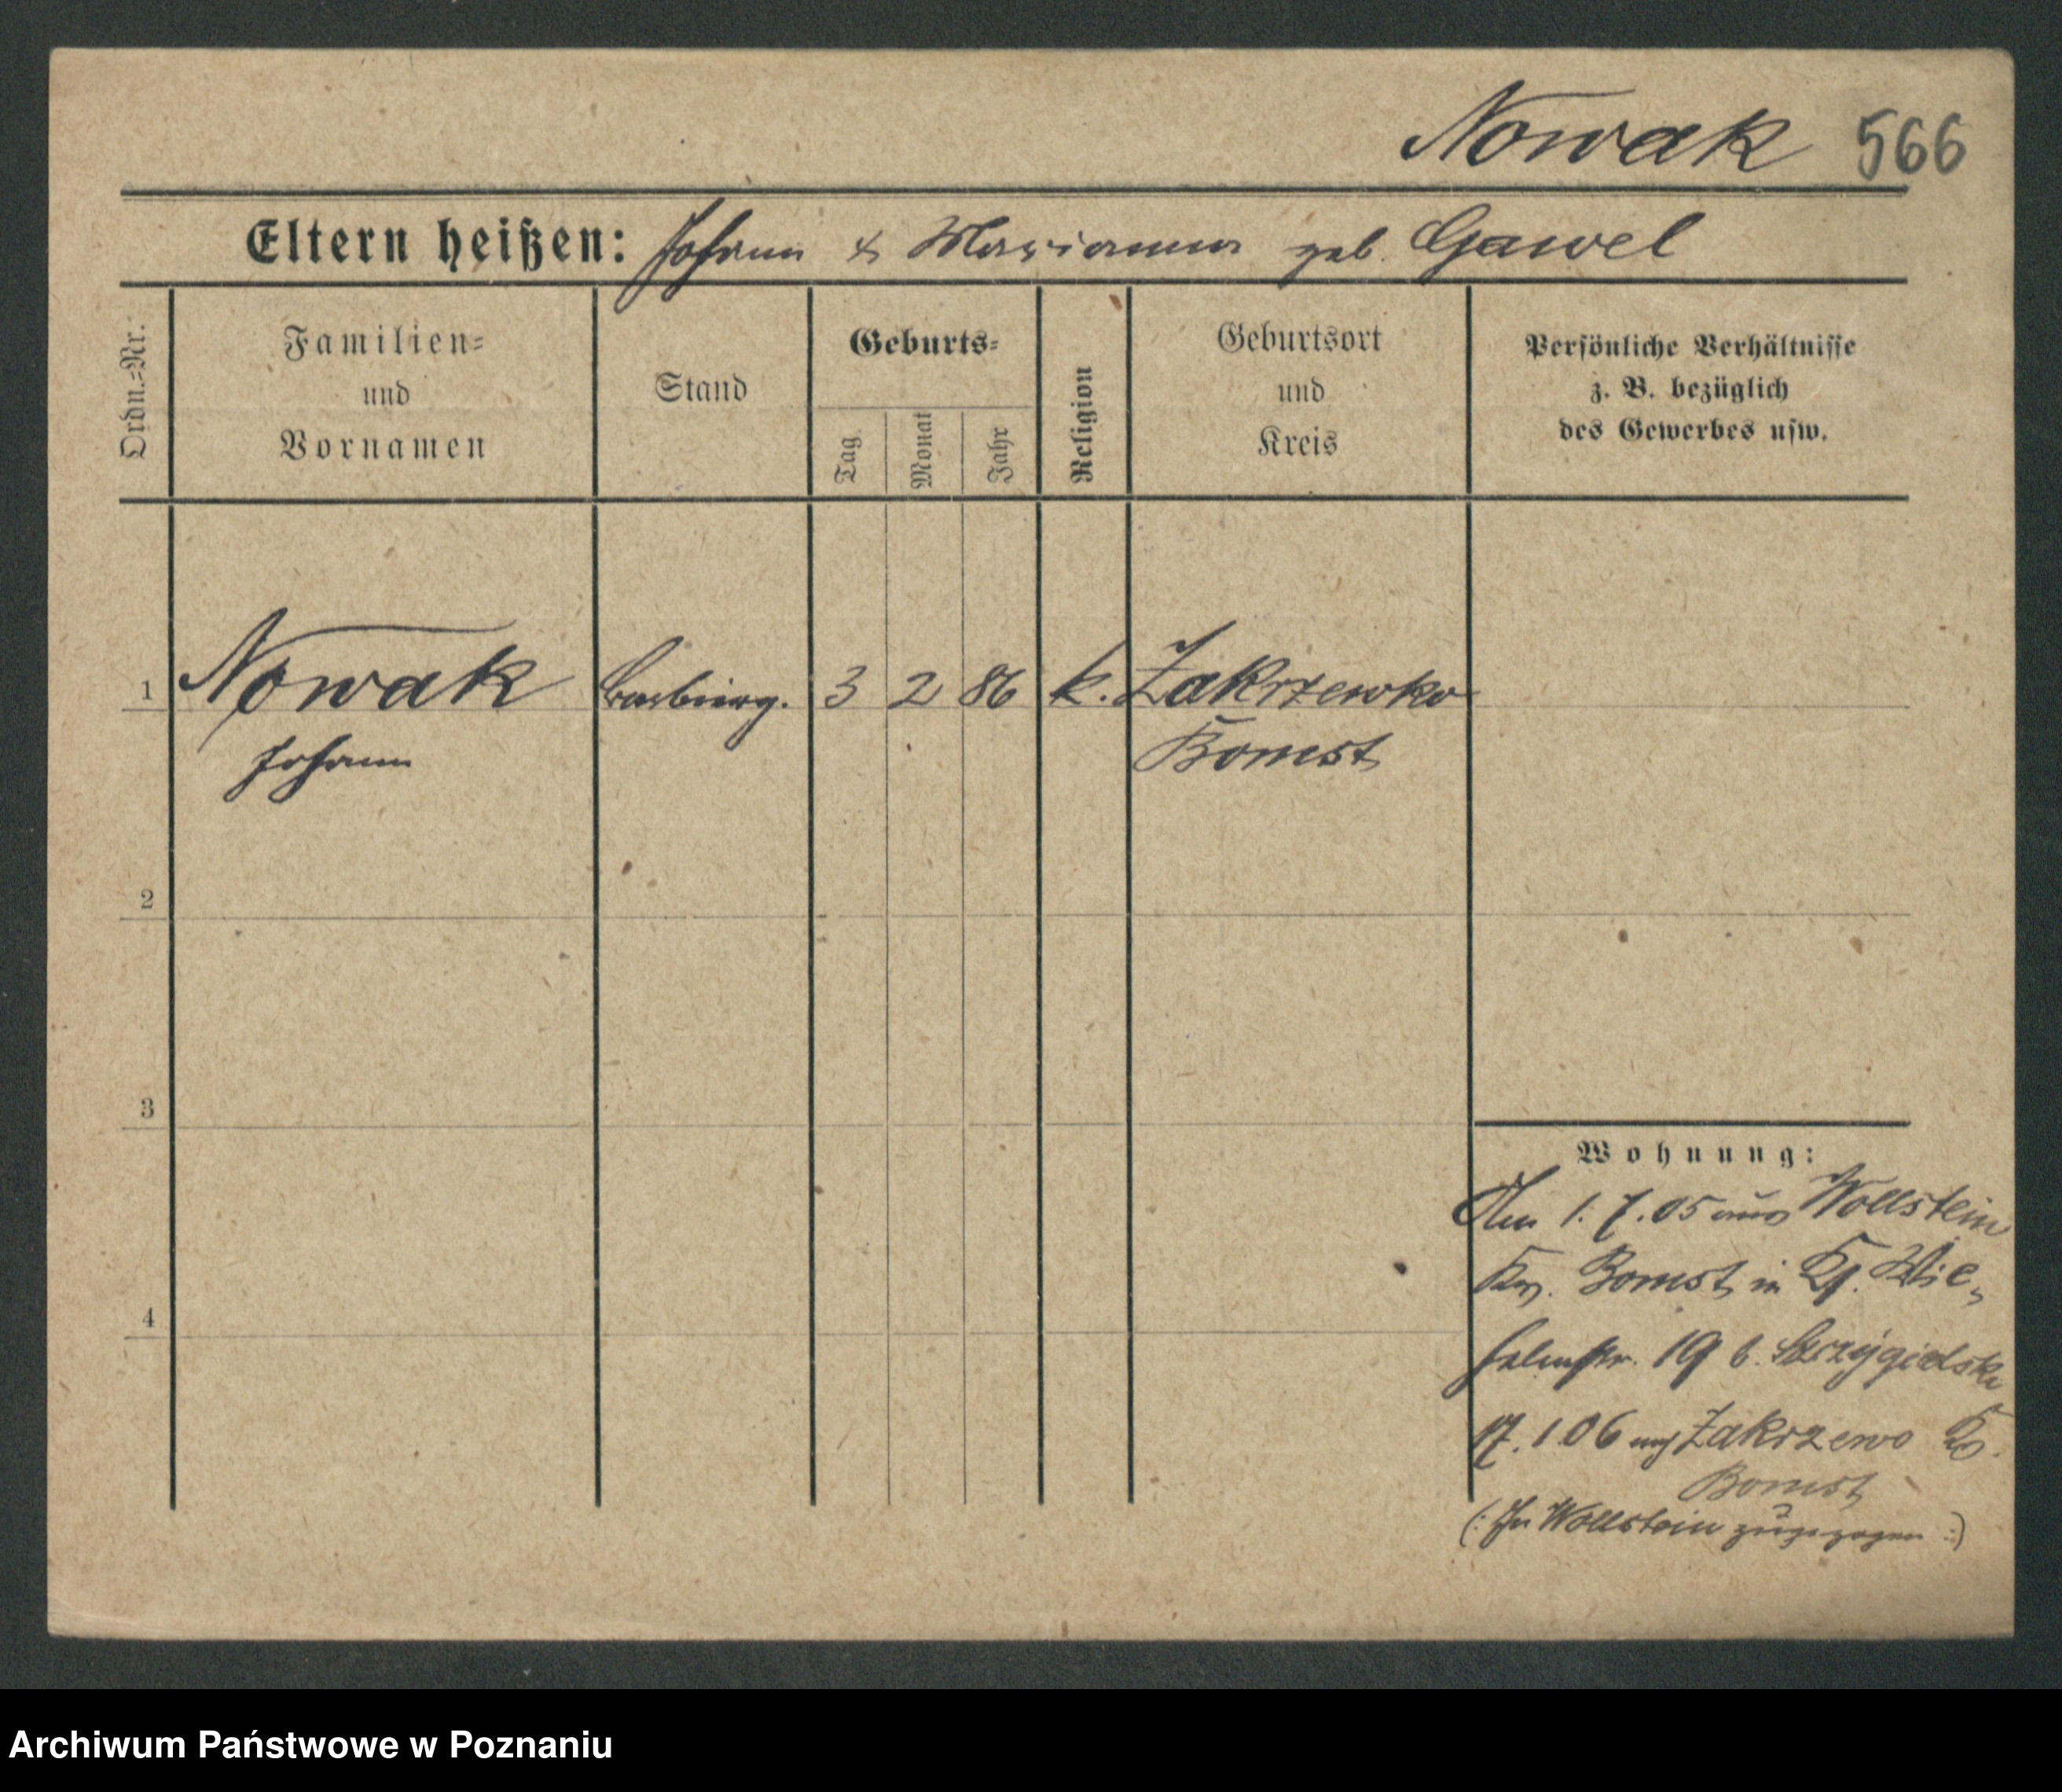 Nowak 566
Eltern heißen: Johann & Marianna geb. Gawel
Ordn.=Nr.
Familien=
und
Vornamen
Stand
Geburts=
Tag
Monat
Jahr
Religion
Geburtsort
und
Kreis
Persönliche Verhältnisse
z. B. bezüglich
des Gewerbes usw.
1 Nowak 3 2 86 k. Zakrzewko
Johann Bomst
2
3
4
Wohnung:
Am 1. 7. 05 aus Wollstein
Bomst in Wil-
helmstr. 19 b.
17. 1 06 nach Zakrzewo
Bomst
(: In Wollstein zugezogen :)
Archiwum Państwowe w Poznaniu